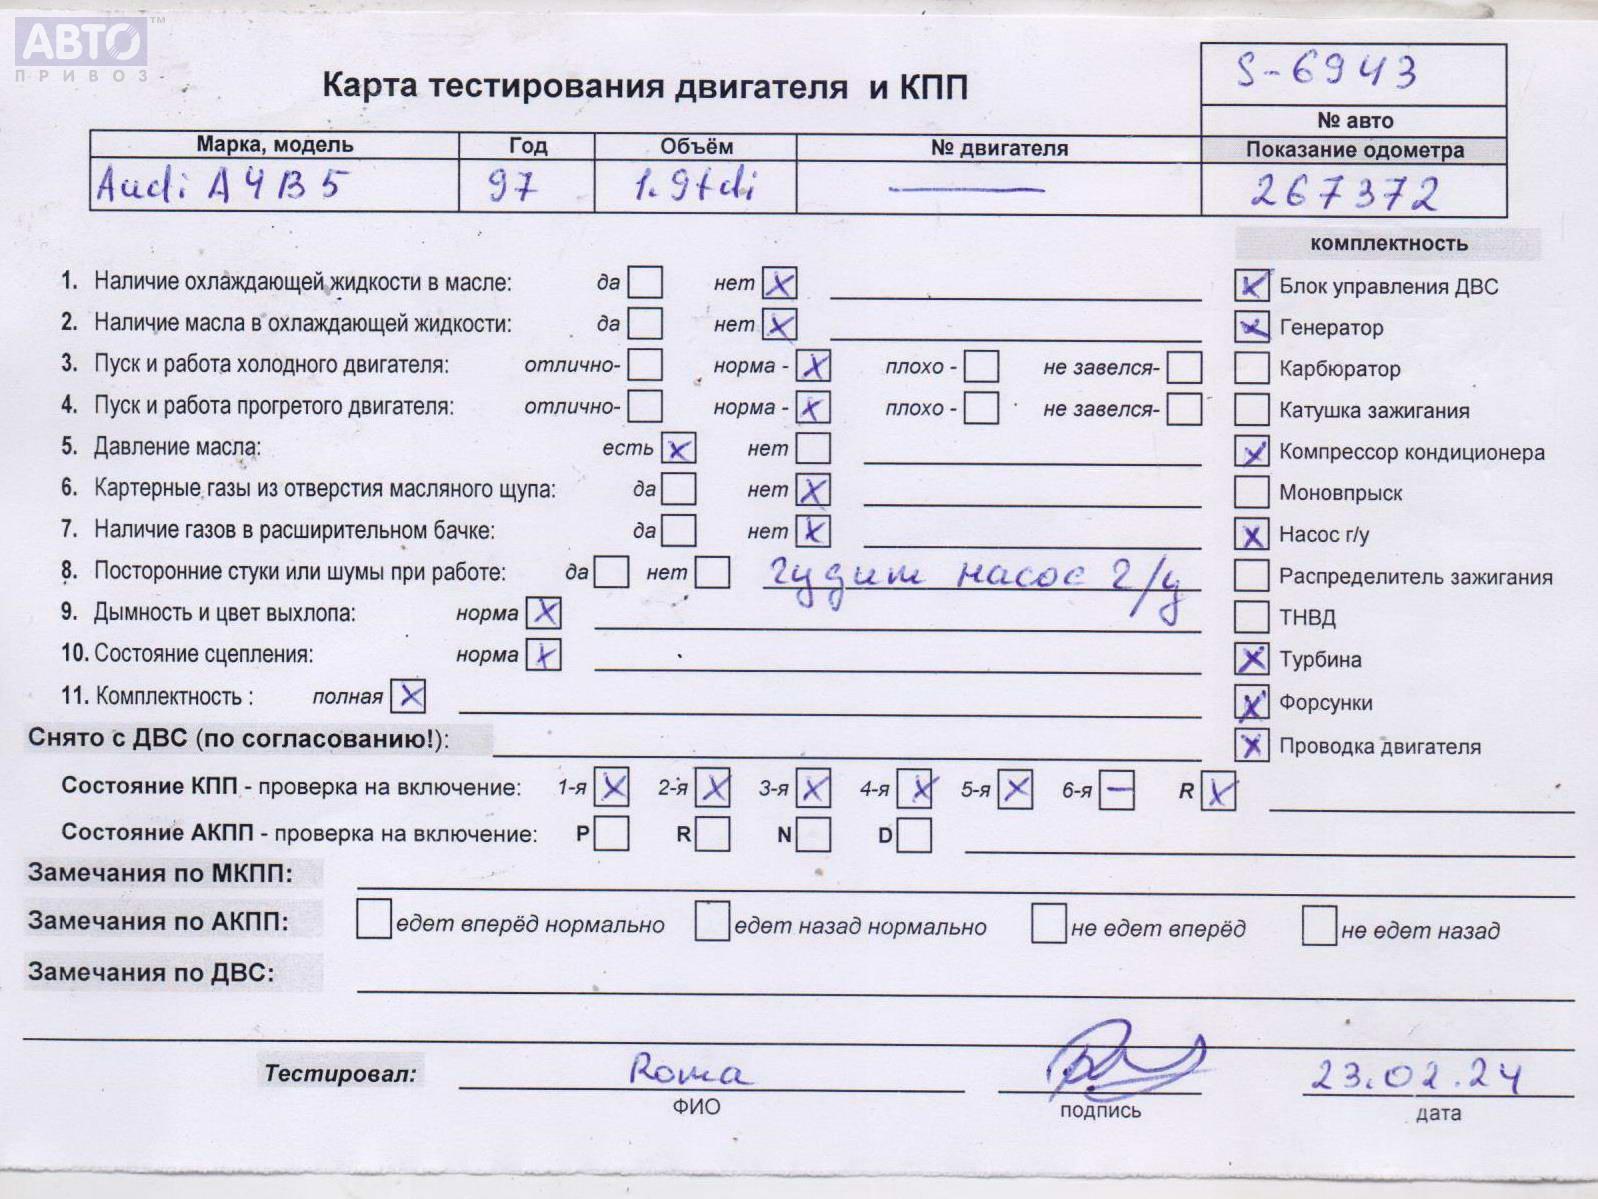 АВТО™
ПРИВОЗ
S-6943
Карта тестирования двигателя и КПП
№ авто
Марка, модель Год Объём № двигателя Показание одометра
Audi A4 B5 97 1.9tdi — 267372
комплектность
1. Наличие охлаждающей жидкости в масле: да нет X X Блок управления ДВС
2. Наличие масла в охлаждающей жидкости: да нет X X Генератор
3. Пуск и работа холодного двигателя: отлично- норма - X плохо - не завелся- Карбюратор
4. Пуск и работа прогретого двигателя: отлично- норма - X плохо - не завелся- Катушка зажигания
5. Давление масла: есть X нет X Компрессор кондиционера
6. Картерные газы из отверстия масляного щупа: да нет X Моновпрыск
7. Наличие газов в расширительном бачке: да нет X X Насос г/у
8. Посторонние стуки или шумы при работе: да нет гудит насос г/у Распределитель зажигания
9. Дымность и цвет выхлопа: норма X ТНВД
10. Состояние сцепления: норма X X Турбина
11. Комплектность : полная X X Форсунки
Снято с ДВС (по согласованию!): X Проводка двигателя
Состояние КПП - проверка на включение: 1-я X 2-я X 3-я X 4-я X 5-я X 6-я — R X
Состояние АКПП - проверка на включение: P R N D
Замечания по МКПП:
Замечания по АКПП: едет вперёд нормально едет назад нормально не едет вперёд не едет назад
Замечания по ДВС:
Тестировал: Roma 23.02.24
ФИО подпись дата